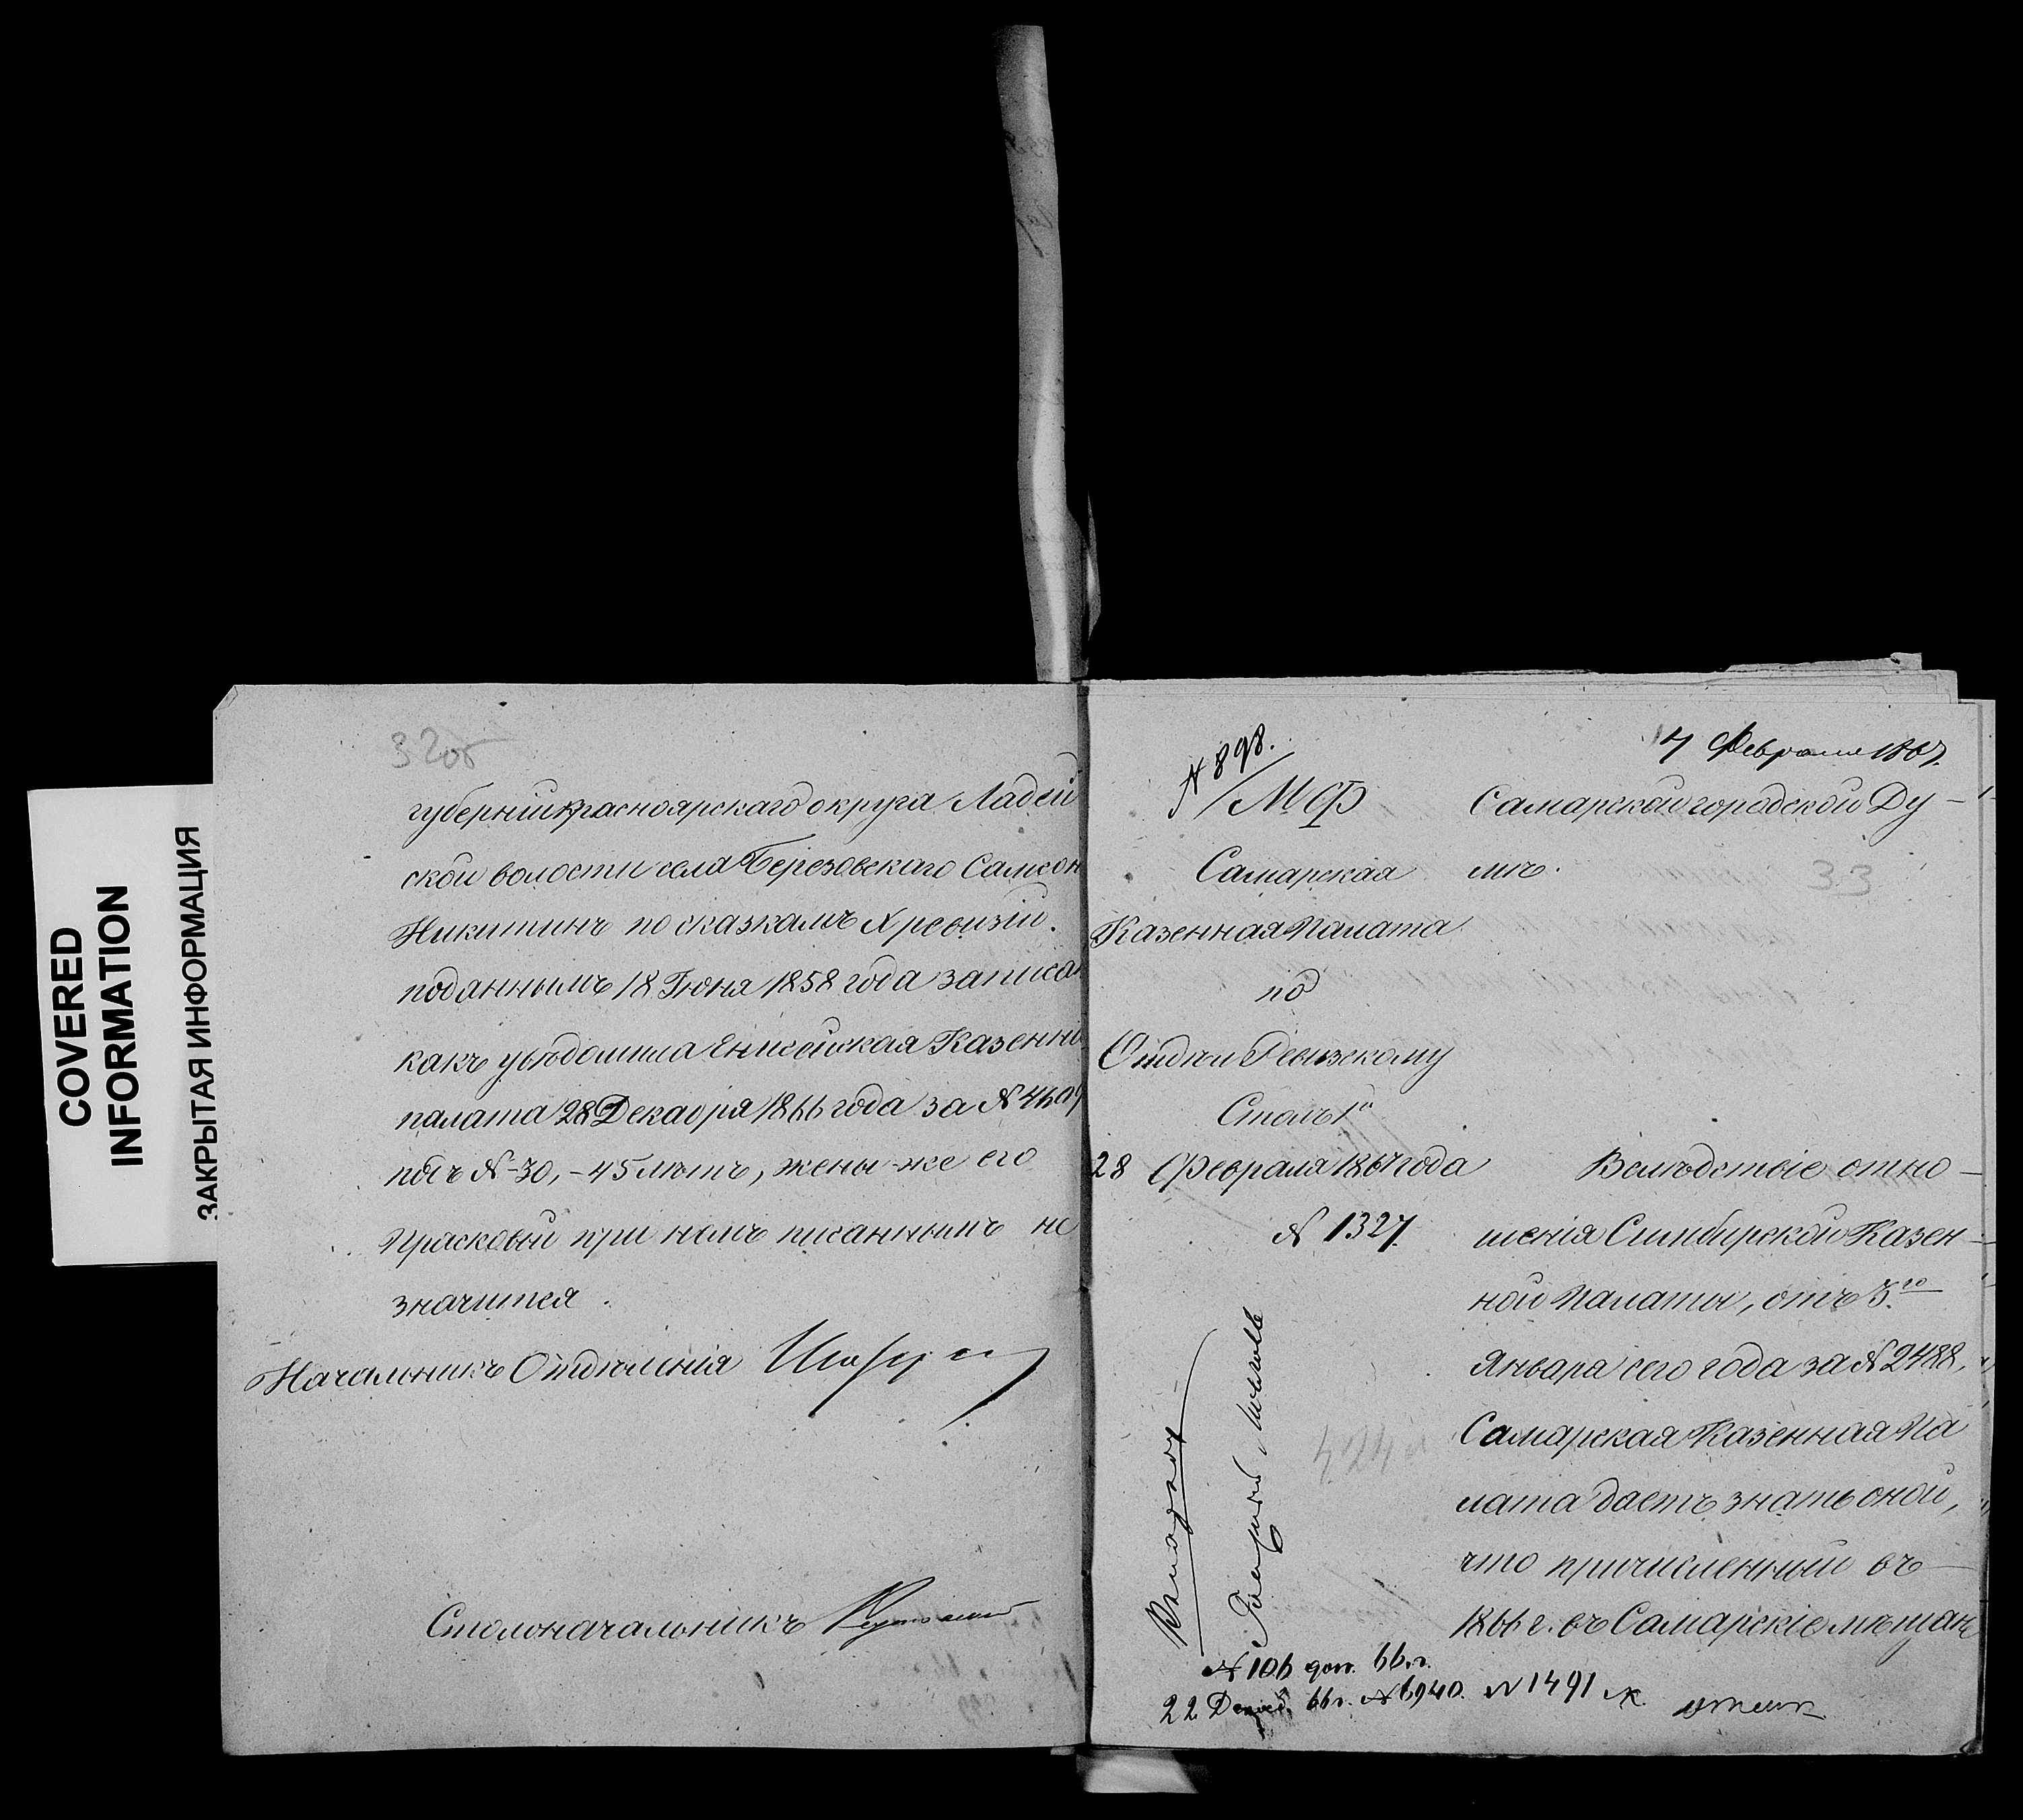 COVERED
INFORMATION
ЗАКРЫТАЯ ИНФОРМАЦИЯ
32об
губерніи Красноярскаго округа Ладей
ской волости села Березовскаго Самсон
Никитинъ по сказкамъ X ревизіи.
поданнымъ 18 Іюня 1858 года записан
какъ увѣдомила Енисейская Казенна
палата 28 Декабря 1866 года за №
подъ № 30, – 45 лѣтъ, жены же его
Прасковьи при немъ писанным не
значится.
Начальникъ Отдѣленія
Столоначальникъ
№ 898.
М Ф
Самарская
Казенная Палата
по
Отдѣл Ревизскому
Столъ 1й
28 Февраля 1867 года
№ 1327.
7 Февраля 1867.
Самарской городской Ду-
мѣ.
33
Вслѣдствіе отно-
шенія Симбирской Казен-
ной Палаты, отъ 3.го
Января сего года за № 2488,
Самарская Казенная Па
лата даетъ знать оной,
что причисленный въ
1866 г. въ Самарскіе мѣщане
424
№ 106 доп. 66 г.
22 Декаб. 66 г. № 6940. № 1491